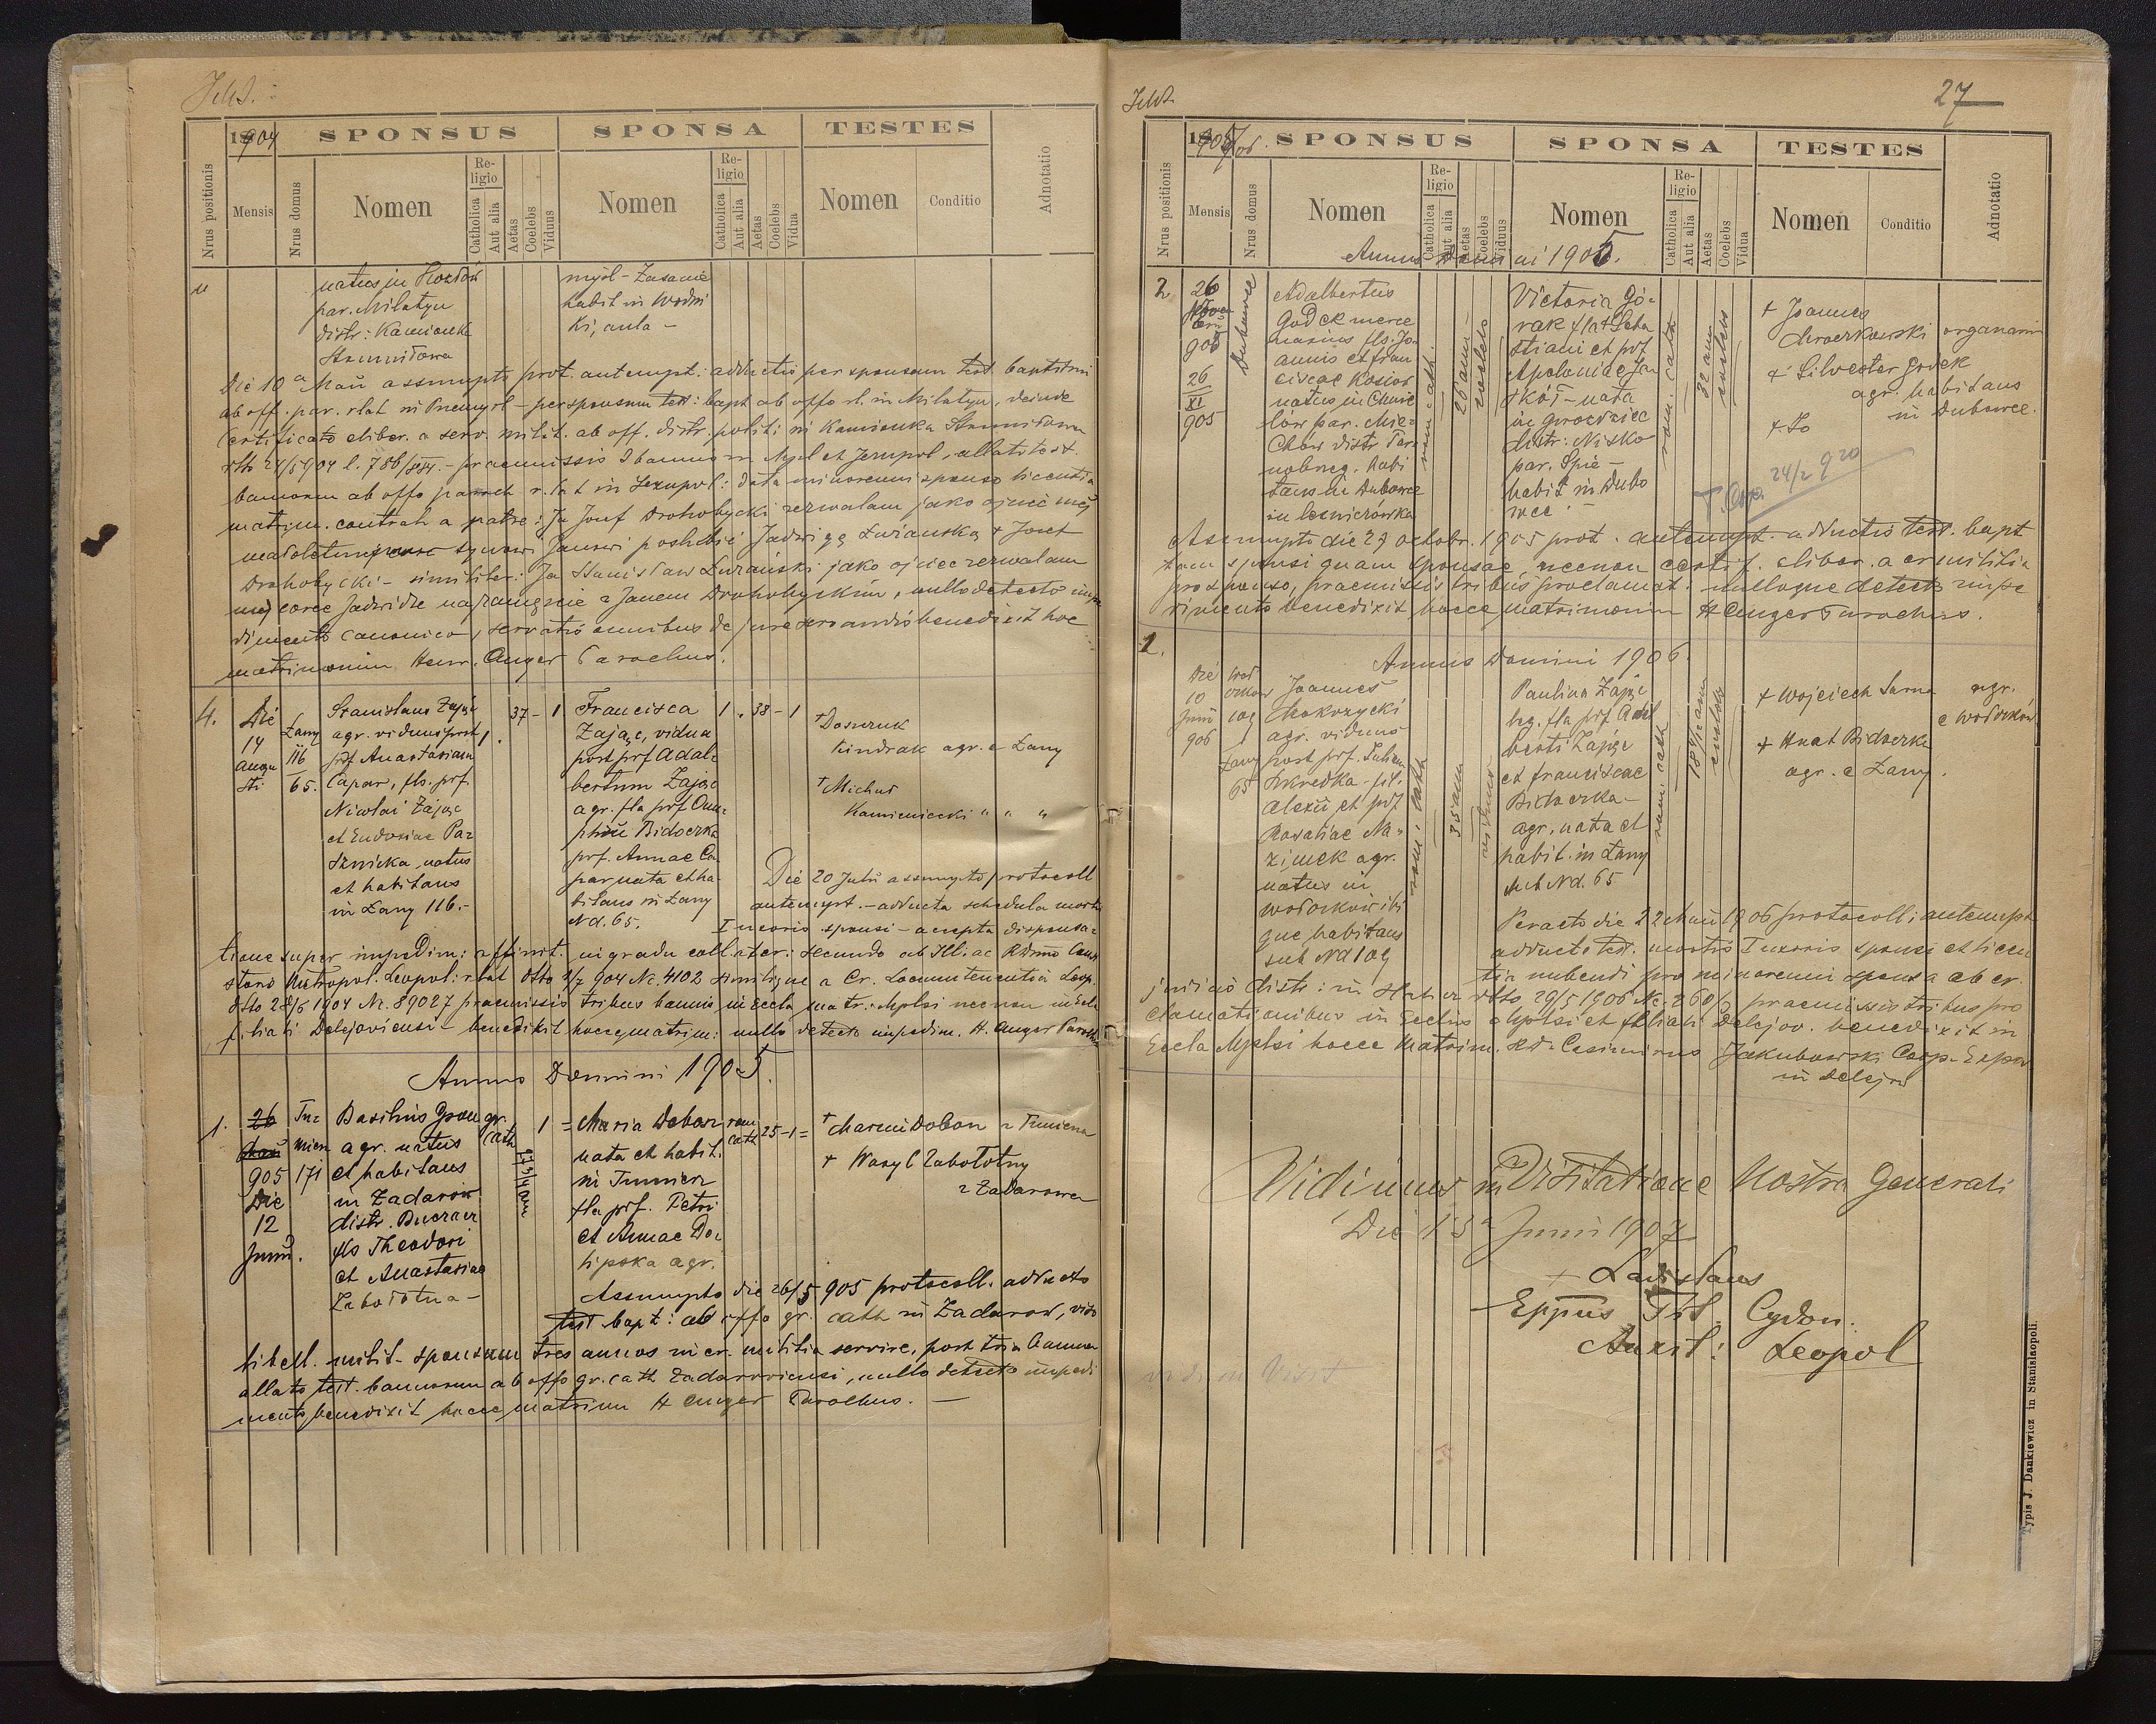 1904 SPONSUS SPONSA TESTES
Nrus positionis Mensis Nrus domus Nomen Religio Catholica Aut alia Aetas Coelebs Viduus Nomen Religio Catholica Aut alia Aetas Coelebs Vidua Nomen Conditio Adnotatio
natus in
par. Milatyn
distr: Kamionka
Strumiłowa
mysl - Zasanie
habit in Wodni
ki, aula -
Die 10ª Maii assumpto prot. antenupt: adductis per sponsam test baptismi
ab off. par. r lat in Premysl - per sponsum test: bapt ab offo rl. in Milatyn, deinde
Certificato eliber. a serv. milit. ab off. distr. polit: in Kamionka Strumiłowa
praemissis 3 bannis in Mpl et Jezupol, allato test.
bannorum ab offo paroch r. lat in Jezupol: data minorenni sponso licentia
matrim. contrah a patre: Ja Josef Drohobycki zezwalam jako ojciec mej
małoletniemu synowi Janowi poslubić Jadwigę Żurańską + Josef
Drohobycki - similiter: Ja Stanisław Żurański jako ojciec zezwalam
mej córce Jadwidze na zamęście z Janem Drohobyckim, nullo detecto impe
dimento canonico, servatis omnibus de jure servandis benedixit hoc
matrimonium Henr. Anger Parochus.
4. Die
14
Augu
sti
Łany
116
65.
Stanislaus Zając
agr. viduus post
prf Anastasiam
Capar, fls. prf.
Nicolai Zając
et Eudoxiae Pa=
sznicka, natus
et habitans
in Łany 116.-
1. 37 - 1
Francisca
Zając, vidua
post prf Adal=
bertum Zając
agr. fla prf Onu=
phrii Bidoczka
prf. Annae Ca
par nata et ha=
bitans in Łany
Nd. 65.
1. 38 - 1
+ Dosuruk
Kindrak agr. e Łany
+ Michaś
Kamieniecki " " "
Die 20 Julii assumpto protocoll
antenupt. - adducta schedula mortis
I uxoris sponsi - accepta dispensa=
tione super impedim: affinit. in gradu collater: secundo ab Illi. ac Rdmo Consi
storio Metropol. Leopol: r lat dtto 2/7 904 Nr. 4102 similique a Cr. Locumtenentia Leop.
dtto 28/6 1904 Nr. 89027 praemissis tribus bannis in Eccla matr. Mplsi necnon in Eccla
filiali Delejoviensi - benedixit hocce matrim: nullo detecto impedim. H. Anger Parochus
Annus Domini 1905.
1. 26
Maii
905
Die
12
Junii.
Tu=
mierz
171
Basilius
agr. natus
et habitans
in Zadarów
distr. Buczacz
fls Theodori
et Anastasiae
Zabołotna -
gr.
cath
1 =
Maria Dobosz
nata et habit.
in Tumierz
fla prf. Petri
et Annae Do=
lipska agr.
rom
cath 25 - 1 =
+ Marcin Dobosz z Tumierza
+ Wasyl Zabołotny
z Zadarowa
Assumpto die 26/5 905 protocoll. adducto
test bapt: ab offo gr. cath in Zadarow, viso
libell. milit - sponsum tres annos in cr. militia servire, post tria banna
allato test. bannorum ab offo gr. cath Zadaroviensi, nullo detecto impedi
mento benedixit hocce matrim H Anger Parochus. -
27
1905/906. SPONSUS SPONSA TESTES
Nrus positionis Mensis Nrus domus Nomen Religio Catholica Aut alia Aetas Coelebs Viduus Nomen Religio Catholica Aut alia Aetas Coelebs Vidua Nomen Conditio Adnotatio
Annus Domini 1905.
2 26
905
26
XI
905
Dubowce
Adalbertus
Godek merce
narius fls. Jo=
annis et Fran
ciscae Kosior
natus in Chmie
lów par. Mie=
chów distr Tar=
nobrzeg. habi
tans in Dubowce
in leśniczówka
rom. cath.
26 anni
coelebs
Victoria Gó=
rak fla Seba
stiani et prf
Apoloniae Ja
skót - nata
in Groździec
distr: Nisko
par. Spie -
habit in Dubo
wce -
rom. cath
22 ann
coelebs
+ Joannes
Mroczkowski organarius
+ Silvester Godek
agr. habitans
in Dubowce.
24/2 920
Assumpto die 29 octobr. 1905 prot. antenupt. adductis test. bapt
tam sponsi quam sponsae, necnon certif. eliber. a cr militia
pro sponso, praemissis tribus proclamat: nulloque detecto impe
dimento benedixit hocce matrimonium H Anger Parochus.
1. Annus Domini 1906.
Die
10
Junii
906
Wod
ników
109
Łany
65
Joannes
Mokrzycki
agr. viduus
post prf. Julian
fil.
Alexii et prf
Rosaliae Na=
zimek agr.
natus in
Wodnikow ibi
que habitans
sub Nd 109
rom. cath
35 ann
viduus
Paulina Zając
leg. fla prf Adal
berti Zając
et Franciscae
Bidoczka -
agr. nata et
habit. in Łany
sub Nd. 65
rom. cath
coelebs
+ Wojciech Sarna agr.
e Wodników
+ Hnat Bidoczka
agr. e Łany.
Peracto die 22 Maii 1906 protocoll: antenupt
adducto test. mortis I uxoris sponsi et licen
tia nubendi pro minorenni sponsa ab cr.
judicio distr: in Halicz dtto 29/5 1906 Nc. 260/6 praemissis tribus pro
clamationibus in Ecclis Mplsi et filiali Delejov. benedixit in
Eccla Mplsi hocce matrim. Rds Casimirus Jakubowski Coop. Expos
in Delejow
Vidimus in Visitatione Nostra Generali
Die 13ª Junii 1907
+ Ladislaus
Eppus Tit. Cydon.
Auxil: Leopol
Typis J. Dankiewicz in Stanislaopoli.